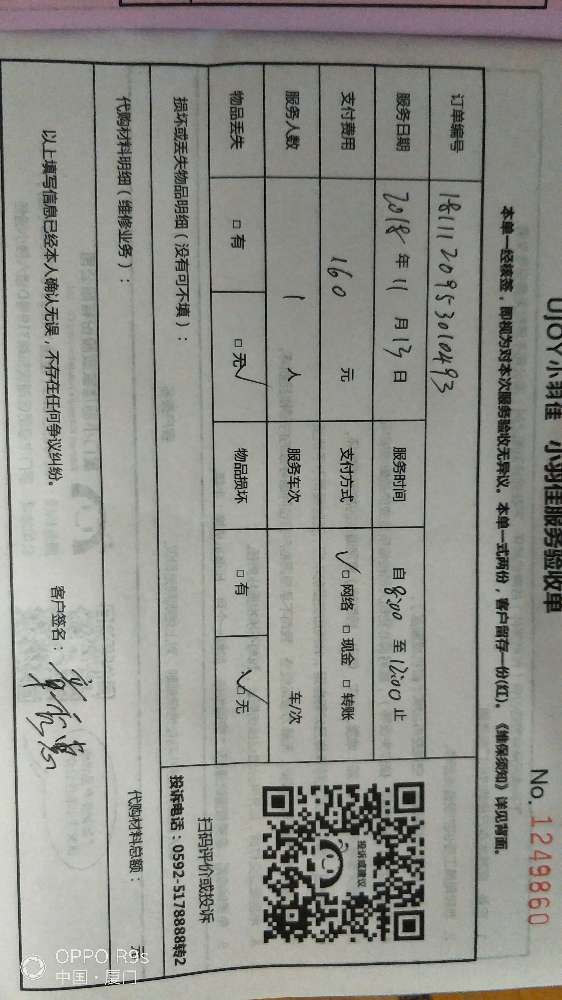 UJOY小羽佳 小羽佳服务验收单
No. 1249860
本单一经核签，即视为对本次服务验收无异议。本单一式两份，客户留存一份(红)。《维保须知》详见背面。
订单编号 1811120953010493
服务日期 2018 年 11 月 13 日 服务时间 自 8:00 至 12:00 止
支付费用 160 元 支付方式 ✓□ 网络 □ 现金 □ 转账
服务人数 1 人 服务车次 车/次
物品丢失 □ 有 □ 无✓ 物品损坏 □ 有 ✓□ 无
投诉或建议
扫码评价或投诉
投诉电话：0592-5178888转2
损坏或丢失物品明细（没有可不填）：
代购材料明细（维修业务）： 代购材料总额： 元
以上填写信息已经本人确认无误，不存在任何争议纠纷。 客户签名：
OPPO R9s
中国·厦门